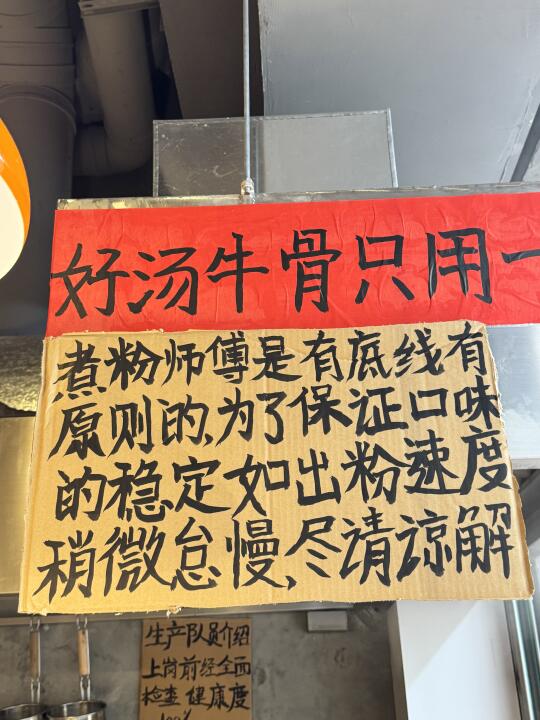 好汤牛骨只用一
煮粉师傅是有底线有
原则的,为了保证口味
的稳定如出粉速度
稍微怠慢,尽请谅解
生产队员介绍
上岗前经全面
检查 健康度
100%